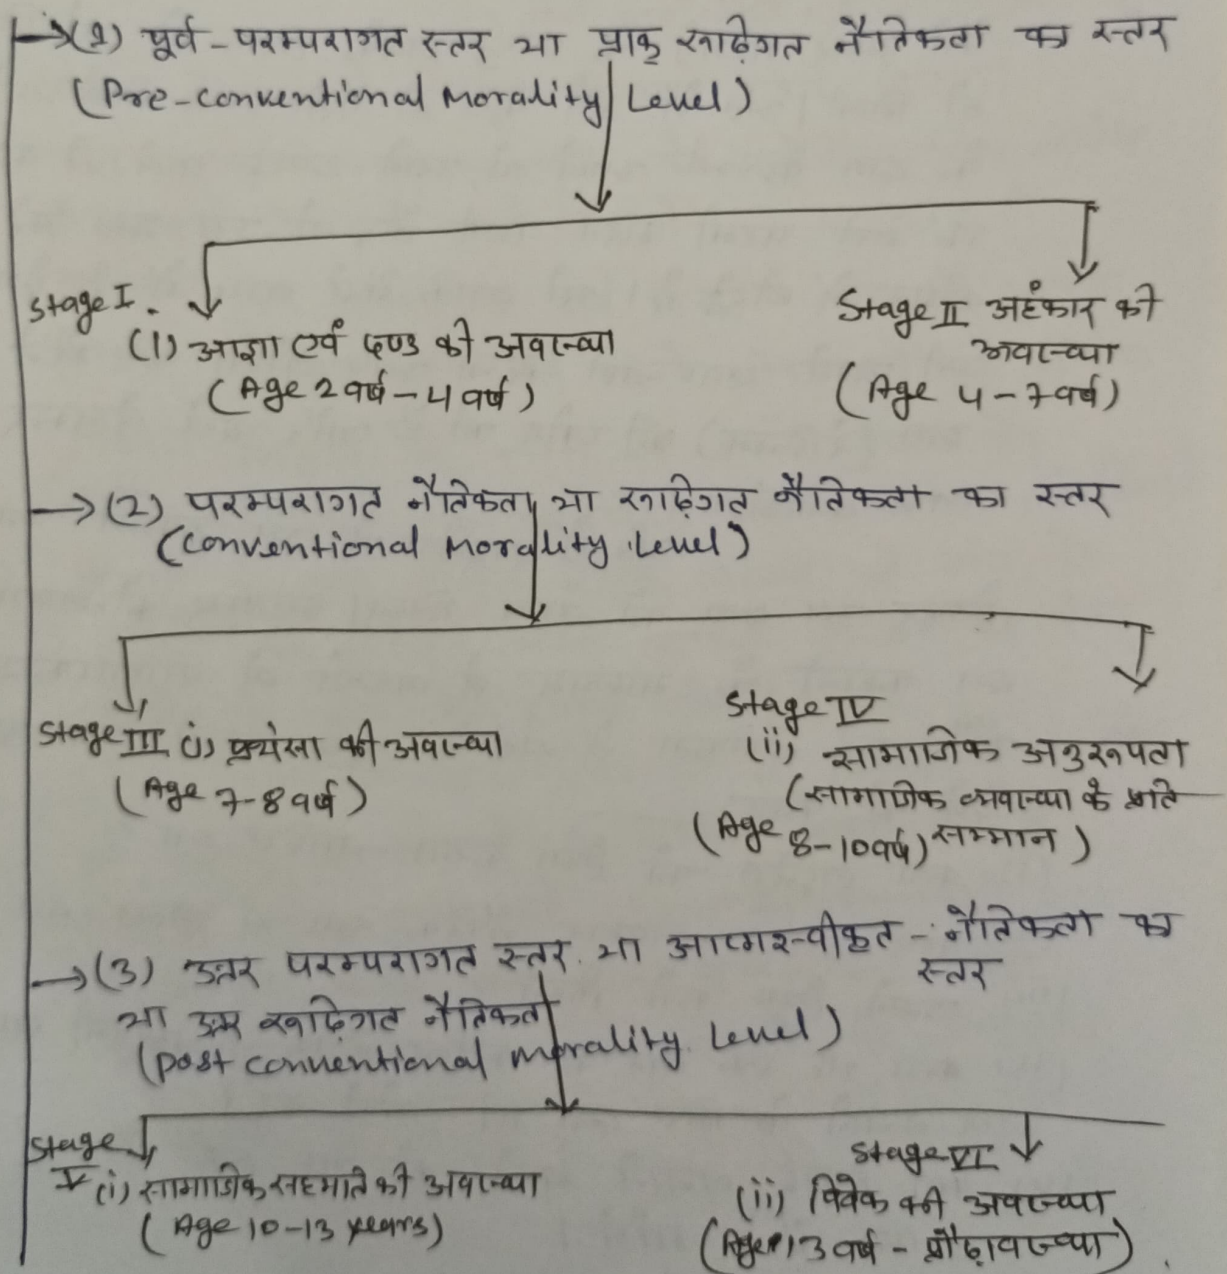 (1) पूर्व - परम्परागत स्तर या प्राक् रूढ़िगत नैतिकता का स्तर
(Pre-conventional Morality Level)
Stage I.
(1) आज्ञा एवं दण्ड की अवस्था
(Age 2 वर्ष - 4 वर्ष)
Stage II अहंकार की
अवस्था
(Age 4-7 वर्ष)
(2) परम्परागत नैतिकता या रूढ़िगत नैतिकता का स्तर
(Conventional Morality Level)
Stage III (i) प्रशंसा की अवस्था
(Age 7-8 वर्ष)
Stage IV
(ii) सामाजिक अनुरूपता
(सामाजिक व्यवस्था के प्रति
सम्मान)
(Age 8-10 वर्ष)
(3) उत्तर परम्परागत स्तर या आत्मस्वीकृत - नैतिकता का
स्तर
या उत्तर रूढ़िगत नैतिकता
(Post conventional morality Level)
Stage
V (i) सामाजिक सहमति की अवस्था
(Age 10-13 years)
Stage VI
(ii) विवेक की अवस्था
(Age 13 वर्ष - प्रौढ़ावस्था)